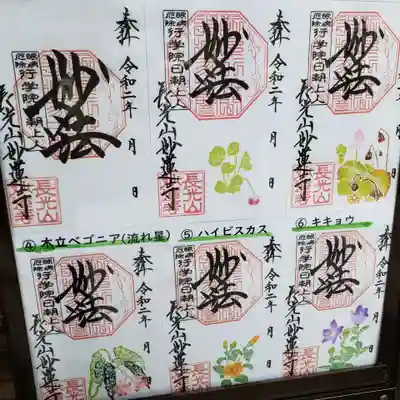 奉拝 令和二年 月 日
妙法
眼病厄除 行学院日朝上人
長光山妙蓮寺
長光山
奉拝 令和二年 月 日
妙法
眼病厄除 行学院日朝上人
長光山妙蓮寺
長光山
奉拝 令和二年 月 日
妙法
眼病厄除 行学院日朝上人
長光山妙蓮寺
長光山
④ 木立ベゴニア(流れ星)
⑤ ハイビスカス
⑥ キキョウ
奉拝 令和二年 月 日
妙法
眼病厄除 行学院日朝上人
長光山妙蓮寺
長光山
奉拝 令和二年 月 日
妙法
眼病厄除 行学院日朝上人
長光山妙蓮寺
長光山
奉拝 令和二年 月 日
妙法
眼病厄除 行学院日朝上人
長光山妙蓮寺
長光山